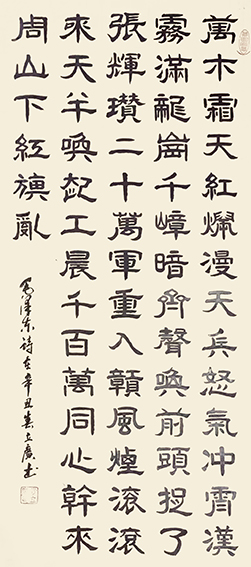 萬木霜天紅爛漫天兵怒氣沖霄漢
霧滿龍崗千嶂暗齊聲喚前頭捉了
張輝瓚二十萬軍重入贛風煙滾滾
來天半喚起工農千百萬同心幹來
周山下紅旗亂
澤东诗辛丑冀立廣书